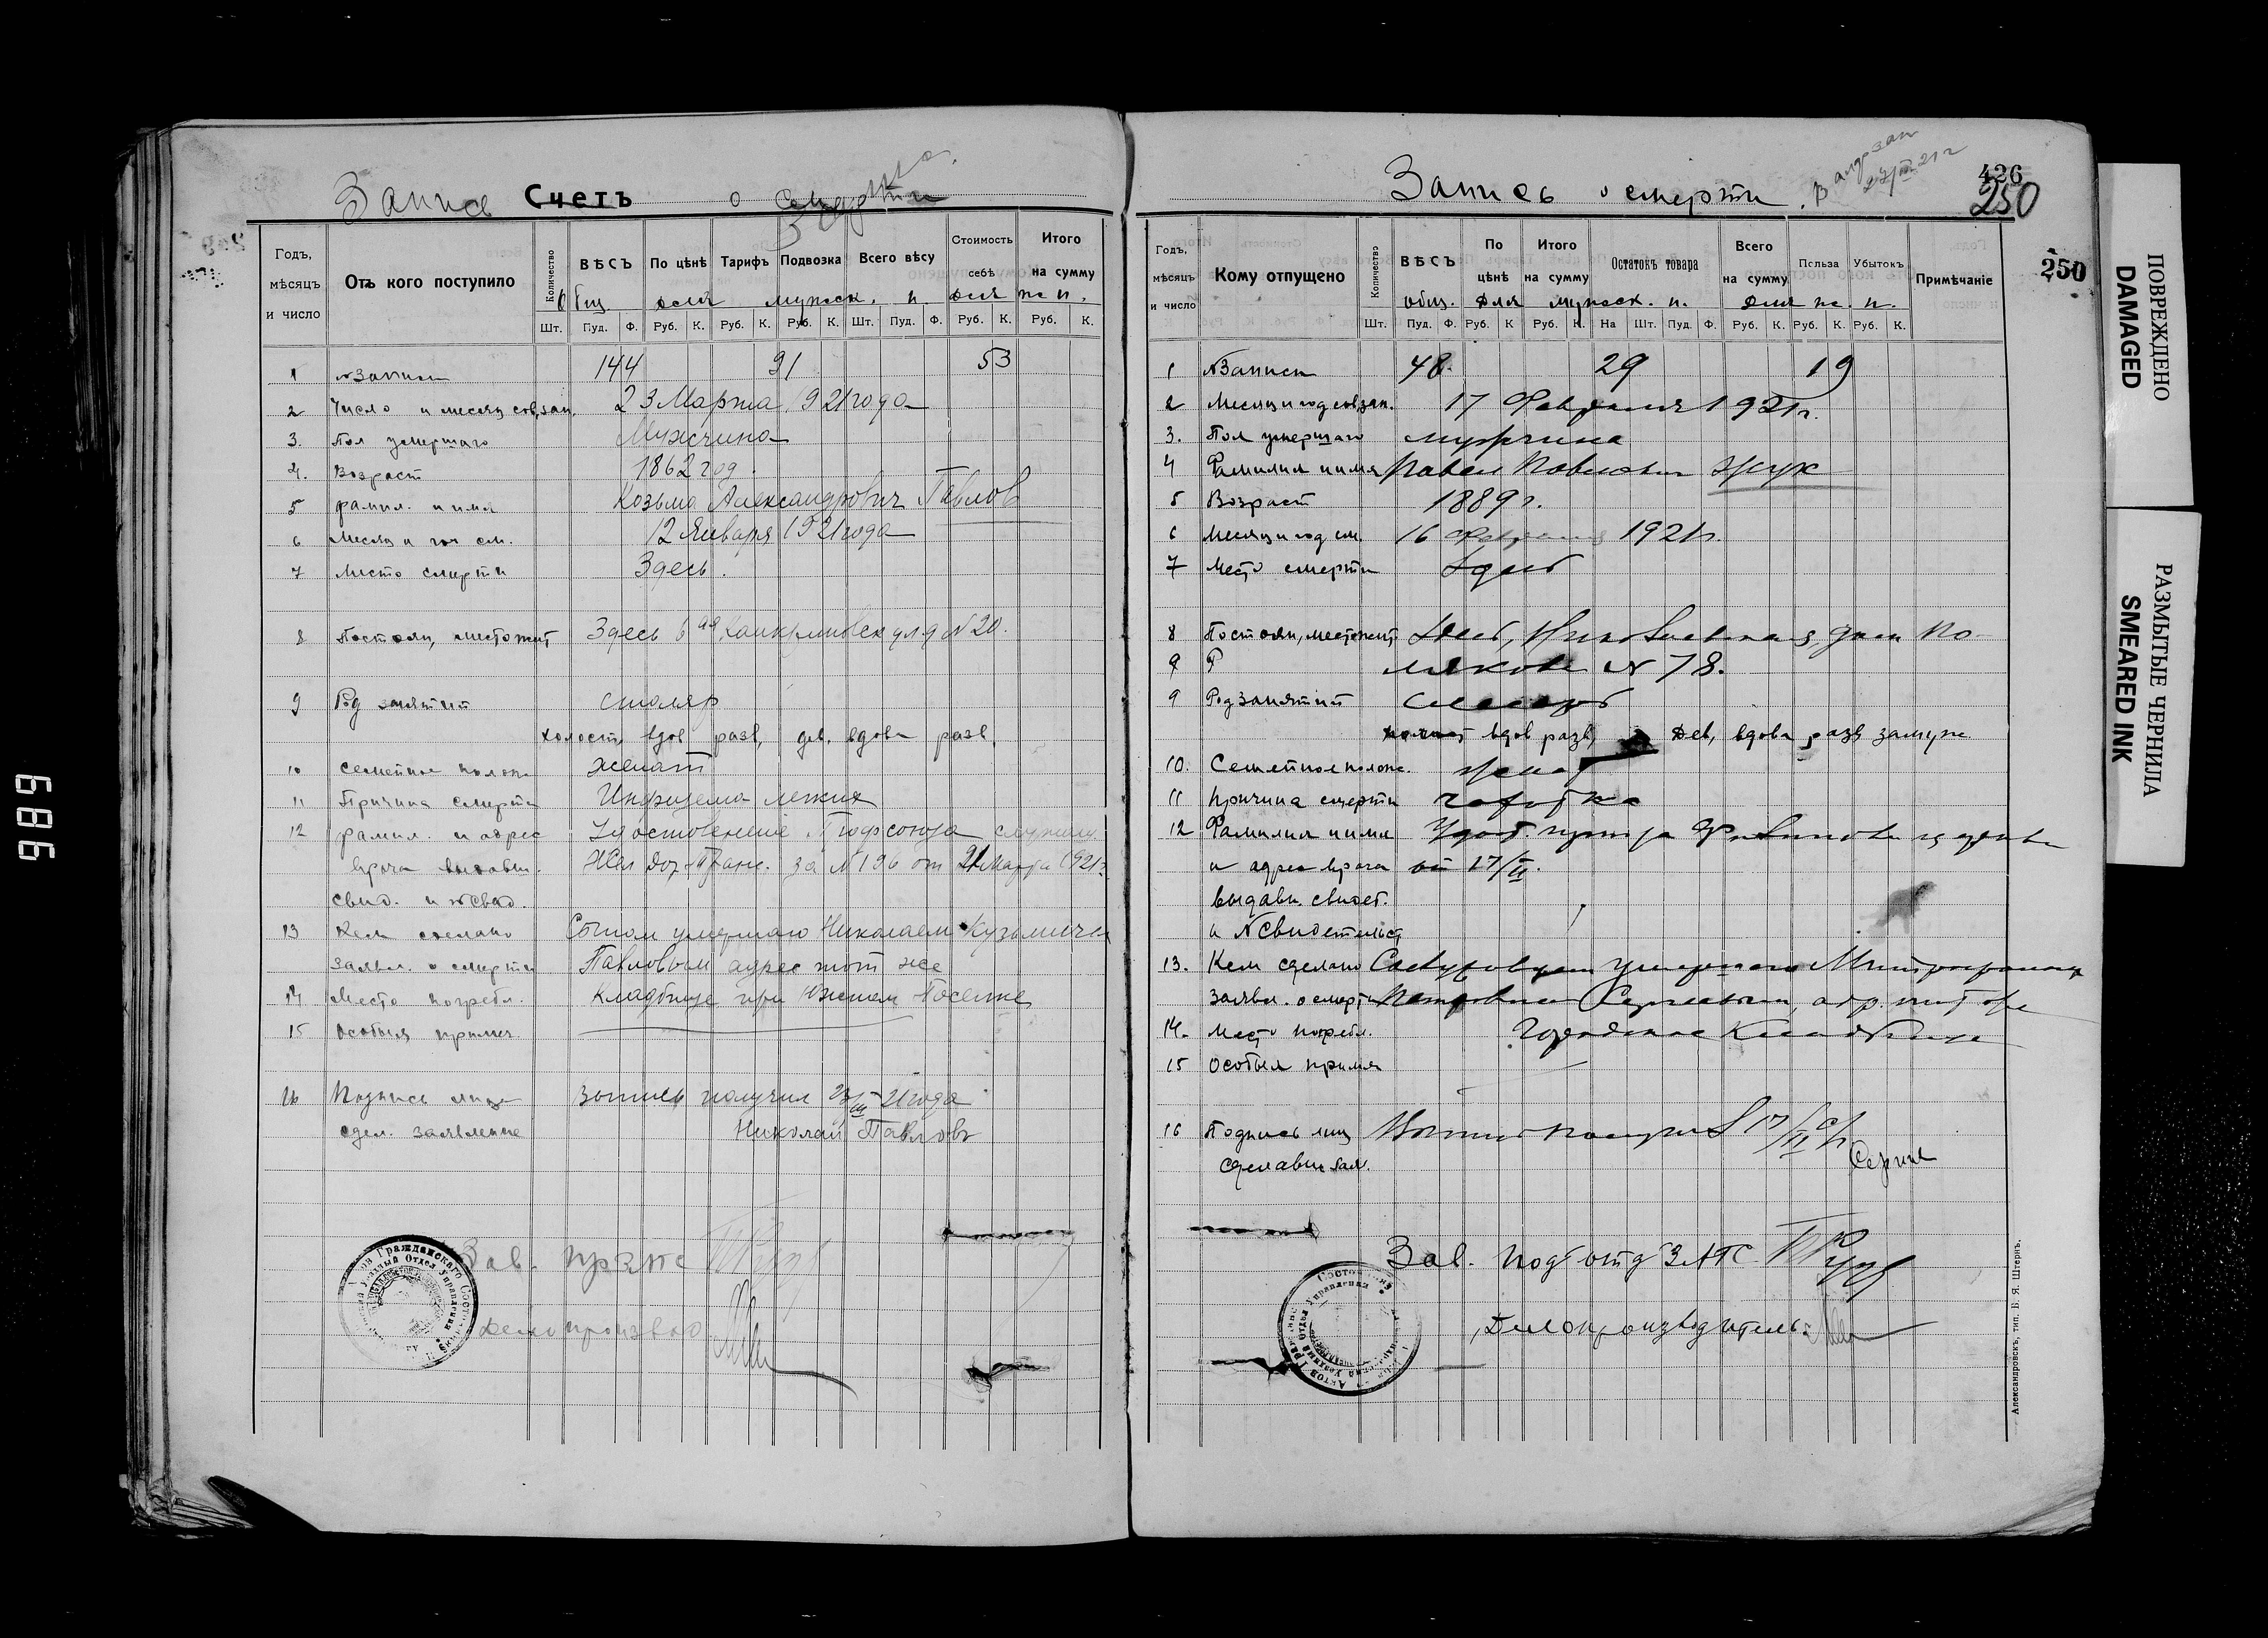 Запись Счетъ о смерти
Годъ, мѣсяцъ и число
Отъ кого поступило
Количество
ВѢСЪ
По цѣнѣ
Тарифъ
Подвозка
Всего вѣсу
Стоимость себѣ
Итого на сумму
Общ для мужск. п. для ж. п.
Шт. Пуд. Ф. Руб. К. Руб. К. Руб. К. Шт. Пуд. Ф. Руб. К. Руб. К.
1 №записи 144 91 53
2 Число и месяц сов. зап. 23 Марта 1921 года
3. Пол умершаго Мужчина
4. Возраст 1862 год.
5 фамил. и имя Козьма Александрович Павлов
6 Месяц и год см. 12 Января 1921 года
7 Место смерти Здесь.
8 Постоян, местожит Здесь 6ая № 20.
9 Род занятий столяр
холост, вдов разв, дев. вдова разв.
10 Семейное полож женат
11 Причина смерти легких
12 фамил. и адрес Удостоверение Профсоюза
врача выдавш. за № 196 от 21 Марта 1921 г.
свид. и № свид.
13 Кем сделано Сыном умершаго Николаем Кузьмичем
заявл. о смерти Павловым адрес тот же
14 Место погребл. Кладбище при Южном Поселке
15 Особыя примеч.
16 Подпись лица Выпись получил 23/III-21 года
сдел. заявление Николай Павловъ
Зав. прзагс
Делопроизвод
Запись о смерти.
426
250
250
Годъ, мѣсяцъ и число
Кому отпущено
Количество
ВѢСЪ
По цѣнѣ
Итого на сумму
Остатокъ товара
Всего на сумму
Польза
Убытокъ
Примѣчаніе
общ. для мужск. п. для ж. п.
Шт. Пуд. Ф. Руб. К Руб. К. На Шт. Пуд. Ф. Руб. К. Руб. К. Руб. К.
1 №Записи 48. 29 19
2 Месяц и год сов. зап. 17 Февраля 1921 г.
3. Пол умершаго мужчина
4 Фамилия и имя Павел Павлович Жук
5 Возраст 1889 г.
6 Месяц и год см. 16 Февраля 1921 г.
7 Место смерти Здесь
8 Постоян, местожит Здесь, Николаевская, дом По-
9 Р лякова № 78.
9 Род занятий слесарь
холост вдов разв, Дев, вдова, разв замуж
10. Семейное полож. женат
11 Причина смерти чахотка
12 Фамилия и имя Удост.
и адрес врача от 17/II.
выдавш. свидет.
и № свидетельст
13. Кем сделано умершаго Митрофаном
заявл. о смерти адр. тот же
14. Место погребл. Городское Кладбище
15 Особыя примеч
16 Подпись лиц Выпись получил 17/II 21 г.
сделавш заяв.
Зав. подъотд ЗАГС
Делопроизводитель:
Александровскъ, тип. В. Я. Штернъ.
ПОВРЕЖДЕНО
DAMAGED
РАЗМЫТЫЕ ЧЕРНИЛА
SMEARED INK
689